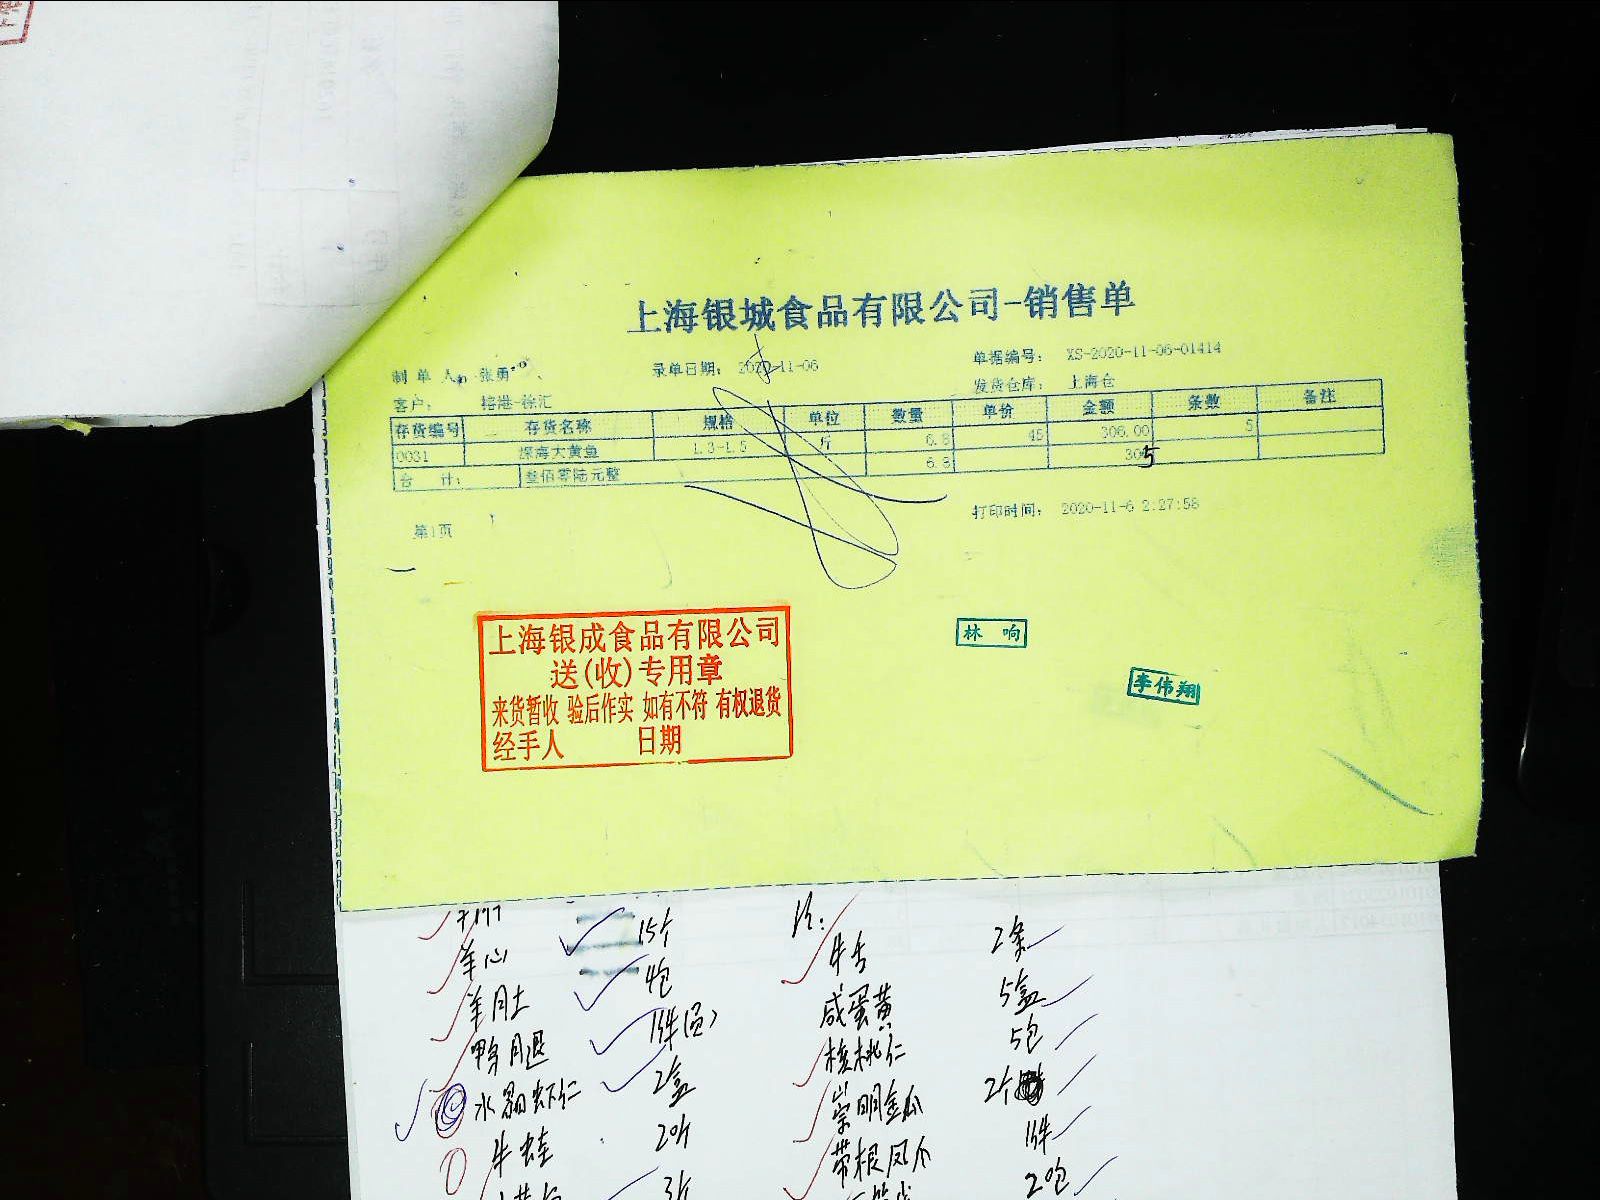 上海银城食品有限公司-销售单
制 单 人: 张勇 录单日期: 2020-11-06 单据编号: XS-2020-11-06-01414
客户: 榕港-徐汇 发货仓库: 上海仓
存货编号 存货名称 规格 单位 数量 单价 金额 条数 备注
0031 深海大黄鱼 1.3-1.5 斤 6.8 45 306.00 5
合 计: 叁佰零陆元整 6.8 305
第1页 打印时间: 2020-11-6 2:27:58
上海银成食品有限公司
送(收)专用章
来货暂收 验后作实 如有不符 有权退货
经手人 日期
林 响
李伟翔
羊心 15个
羊肚 4包
鸭腿
水晶虾仁 2盒
牛蛙 20斤
3斤
牛舌 2条
咸蛋黄 5盒
核桃仁 5包
崇明金瓜 2个
带根凤爪 1件
20包